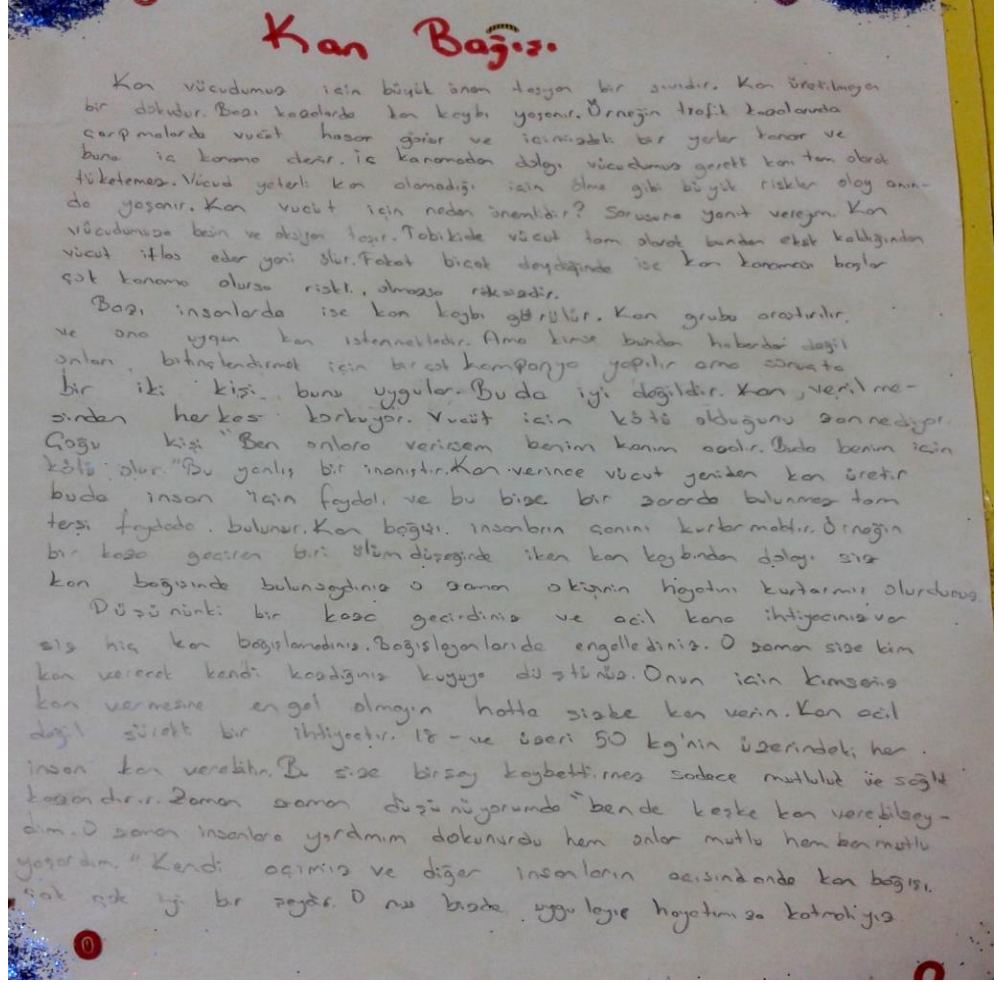 Kan Bağışı
Kan vücudumuz için büyük önem taşıyan bir sıvıdır. Kan üretilmeyen
bir dokudur. Bazı kazalarda kan kaybı yaşanır. Örneğin trafik kazalarında
çarpmalarda vucüt hasar görür ve içimizdeki bir yerler kanar ve
buna iç kanama denir. iç kanamadan dolayı vücudumuz gerekli kanı tam olarak
tüketemez. Vücud yeterli kan alamadığı için ölme gibi büyük riskler olay anın-
da yaşanır. Kan vucüt için neden önemlidir? Sorusuna yanıt vereyim. Kan
vücudumuza besin ve oksijen taşır. Tabikide vücut tam olarak bundan eksik kaldığından
vücut iflas eder yani ölür. Fakat bıçak deydiğinde ise kan kanaması başlar
çok kanama olursa riskli, olmazsa risksizdir.
Bazı insanlarda ise kan kaybı görülür. Kan grubu araştırılır.
ve ona uygun kan istenmektedir. Ama kimse bundan haberdar değil
onları bilinçlendirmek için bir çok kampanya yapılır ama sonuçta
bir iki kişi bunu uygular. Bu da iyi değildir. Kan verilme-
sinden herkes korkuyor. Vucüt için kötü olduğunu zannediyor.
Çoğu kişi "Ben onlara verirsem benim kanım azalır. Buda benim için
kötü olur." Bu yanlış bir inanıştır. Kan verince vücut yeniden kan üretir
buda insan için faydalı ve bu bize bir zararda bulunmaz tam
tersi faydada bulunur. Kan bağışı insanların canını kurtarmaktır. Örneğin
bir kaza geçiren biri ölüm düşeğinde iken kan kaybından dolayı siz
kan bağışında bulunsaydınız o zaman o kişinin hayatını kurtarmış olurdunuz.
Düşününki bir kaza geçirdiniz ve acil kana ihtiyacınız var
siz hiç kan bağışlamadınız. Bağışlayanlarıda engellediniz. O zaman size kim
kan verecek kendi kazdığınız kuyuya düştünüz. Onun için kimsenin
kan vermesine engel olmayın hatta sizde kan verin. Kan acil
değil sürekli bir ihtiyaçtır. 18 - ve üzeri 50 kg'nin üzerindeki her
insan kan verebilir. Bu size birşey kaybettirmez sadece mutluluk ve sağlık
kazandırır. Zaman zaman düşünüyorumda "bende keşke kan verebilsey-
dim. O zaman insanlara yardımım dokunurdu hem onlar mutlu hem ben mutlu
yaşardım." Kendi açımız ve diğer insanların açısındanda kan bağışı
çok çok iyi bir şeydir. O nu bizde uygulayıp hayatımıza katmalıyız